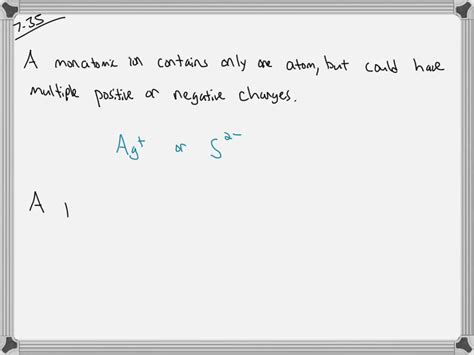 7.35
A monatomic ion contains only one atom, but could have
multiple positive or negative charges.
Ag⁺ or S²⁻
A